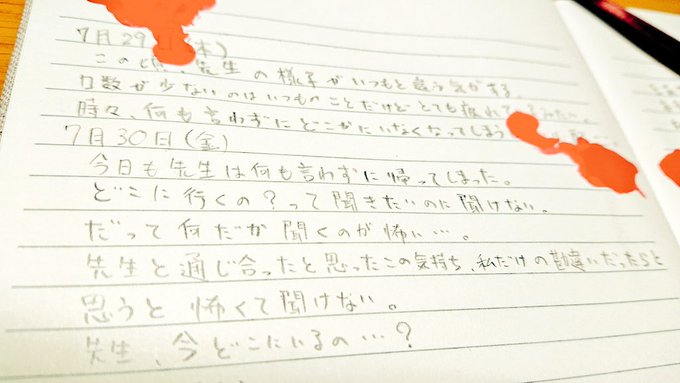 7月29 木)
この 、先生の様子がいつもと違う気がする。
口数が少ないのはいつものことだけど とても疲れているみたい。
時々、何も言わずにどこかにいなくなってしまう
7月30日(金)
今日も先生は何も言わずに帰ってしまった。
どこに行くの?って聞きたいのに聞けない。
だって何だか聞くのが怖い…。
先生と通じ合ったと思ったこの気持ち、私だけの勘違いだったらと
思うと怖くて聞けない。
先生、今どこにいるの…?